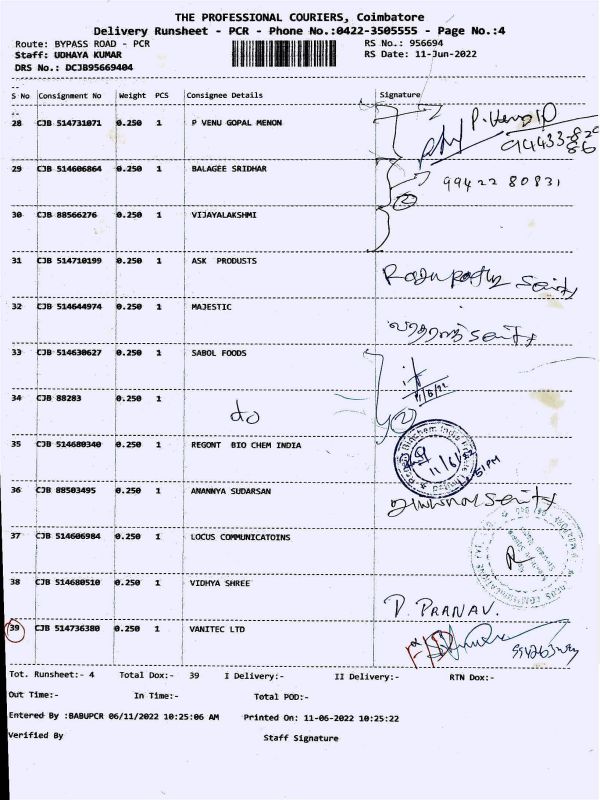 THE PROFESSIONAL COURIERS, Coimbatore
Delivery Runsheet - PCR - Phone No.:0422-3505555 - Page No.:4
Route: BYPASS ROAD - PCR RS No.: 956694
Staff: UDHAYA KUMAR RS Date: 11-Jun-2022
DRS No.: DCJB95669404
S No Consignment No Weight PCS Consignee Details Signature
28 CJB 514731071 0.250 1 P VENU GOPAL MENON
29 CJB 514606864 0.250 1 BALAGEE SRIDHAR
99422 80831
30 CJB 88566276 0.250 1 VIJAYALAKSHMI
31 CJB 514710199 0.250 1 ASK PRODUSTS
32 CJB 514644974 0.250 1 MAJESTIC
33 CJB 514630627 0.250 1 SABOL FOODS
11/6/22
34 CJB 88283 0.250 1 do
35 CJB 514680340 0.250 1 REGONT BIO CHEM INDIA
36 CJB 88503495 0.250 1 ANANNYA SUDARSAN
37 CJB 514606984 0.250 1 LOCUS COMMUNICATOINS
38 CJB 514680510 0.250 1 VIDHYA SHREE
P. PRANAV.
39 CJB 514736380 0.250 1 VANITEC LTD
Tot. Runsheet:- 4 Total Dox:- 39 I Delivery:- II Delivery:- RTN Dox:-
Out Time:- In Time:- Total POD:-
Entered By :BABUPCR 06/11/2022 10:25:06 AM Printed On: 11-06-2022 10:25:22
Verified By Staff Signature